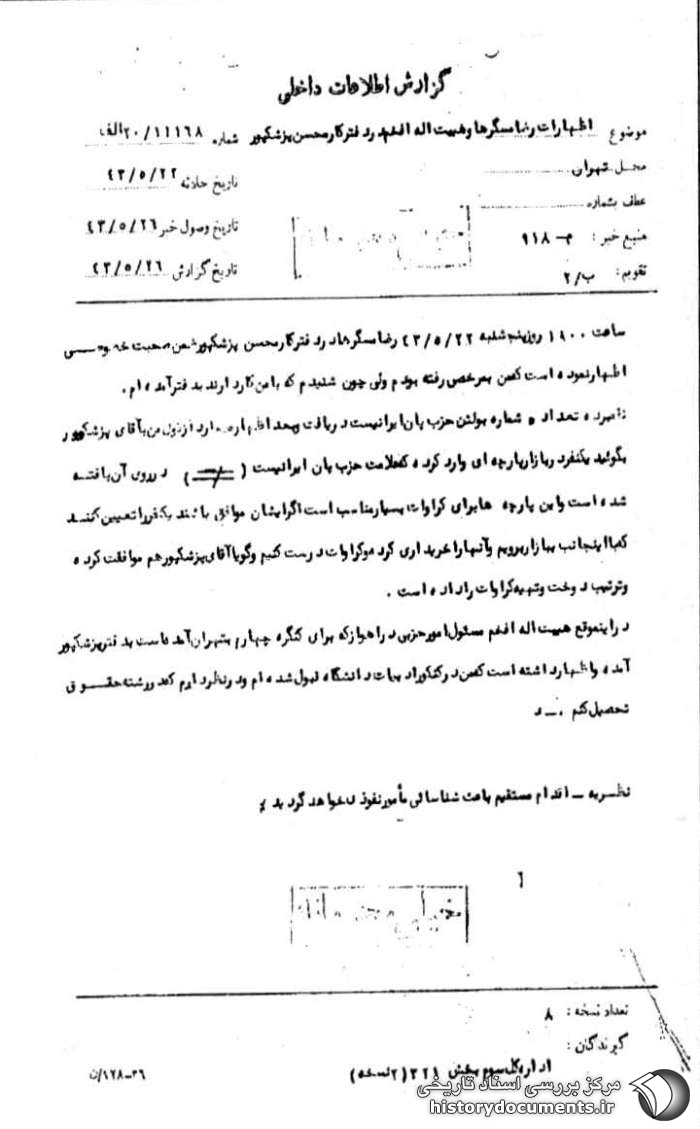 گزارش اطلاعات داخلی
موضوع اظهارات رضا مسگرها و هیبت اله افخم در دفتر کار محسن پزشکپور شماره ۲۰/۱۱۱۶۸ الف
محل تهران تاریخ حادثه ۴۳/۵/۲۲
عطف بشماره تاریخ وصول خبر ۴۳/۵/۲۶
منبع خبر : م – ۹۱۸ تاریخ گزارش ۴۳/۵/۲۶
تقویم : ب/۲
ساعت ۱۹۰۰ روز پنجشنبه ۴۳/۵/۲۲ رضا مسگرها در دفتر کار محسن پزشکپور ضمن صحبت خصوصی
اظهار نموده است که من بمرخصی رفته بودم ولی چون شنیدم که با من کار دارند بدفتر آمده ام .
نامبرده تعداد ۵ شماره بولتن حزب پان ایرانیست دریافت و بعد اظهار میدارد از قول من بآقای پزشکپور
بگوئید یکنفر در بازار پارچه ای وارد کرده که علامت حزب پان ایرانیست ( ≠ ) در روی آن بافته
شده است و این پارچه ها برای کراوات بسیار مناسب است اگر ایشان موافق باشند یکنفر را تعیین کنند
که با اینجانب ببازار برویم و آنها را خریداری کرده و کراوات درست کنیم و گویا آقای پزشکپور هم موافقت کرده
و ترتیب دوخت و تهیه کراوات را داده است .
در اینموقع هیبت اله افخم مسئول امور حزبی در اهواز که برای کنگره چهارم بتهران آمده است بدفتر پزشکپور
آمده و اظهار داشته است که من در کنکور ادبیات دانشگاه قبول شده ام و در نظر دارم که در رشته حقوق
تحصیل کنم . – د
نظریه – اقدام مستقیم باعث شناسائی مأمور نفوذی خواهد گردید
تعداد نسخه : ۸
گیرندگان :
اداره کل سوم بخش ۳۲۱ (۲ نسخه)
۳۶–۱۲۸/ن
مرکز بررسی اسناد تاریخی
historydocuments.ir